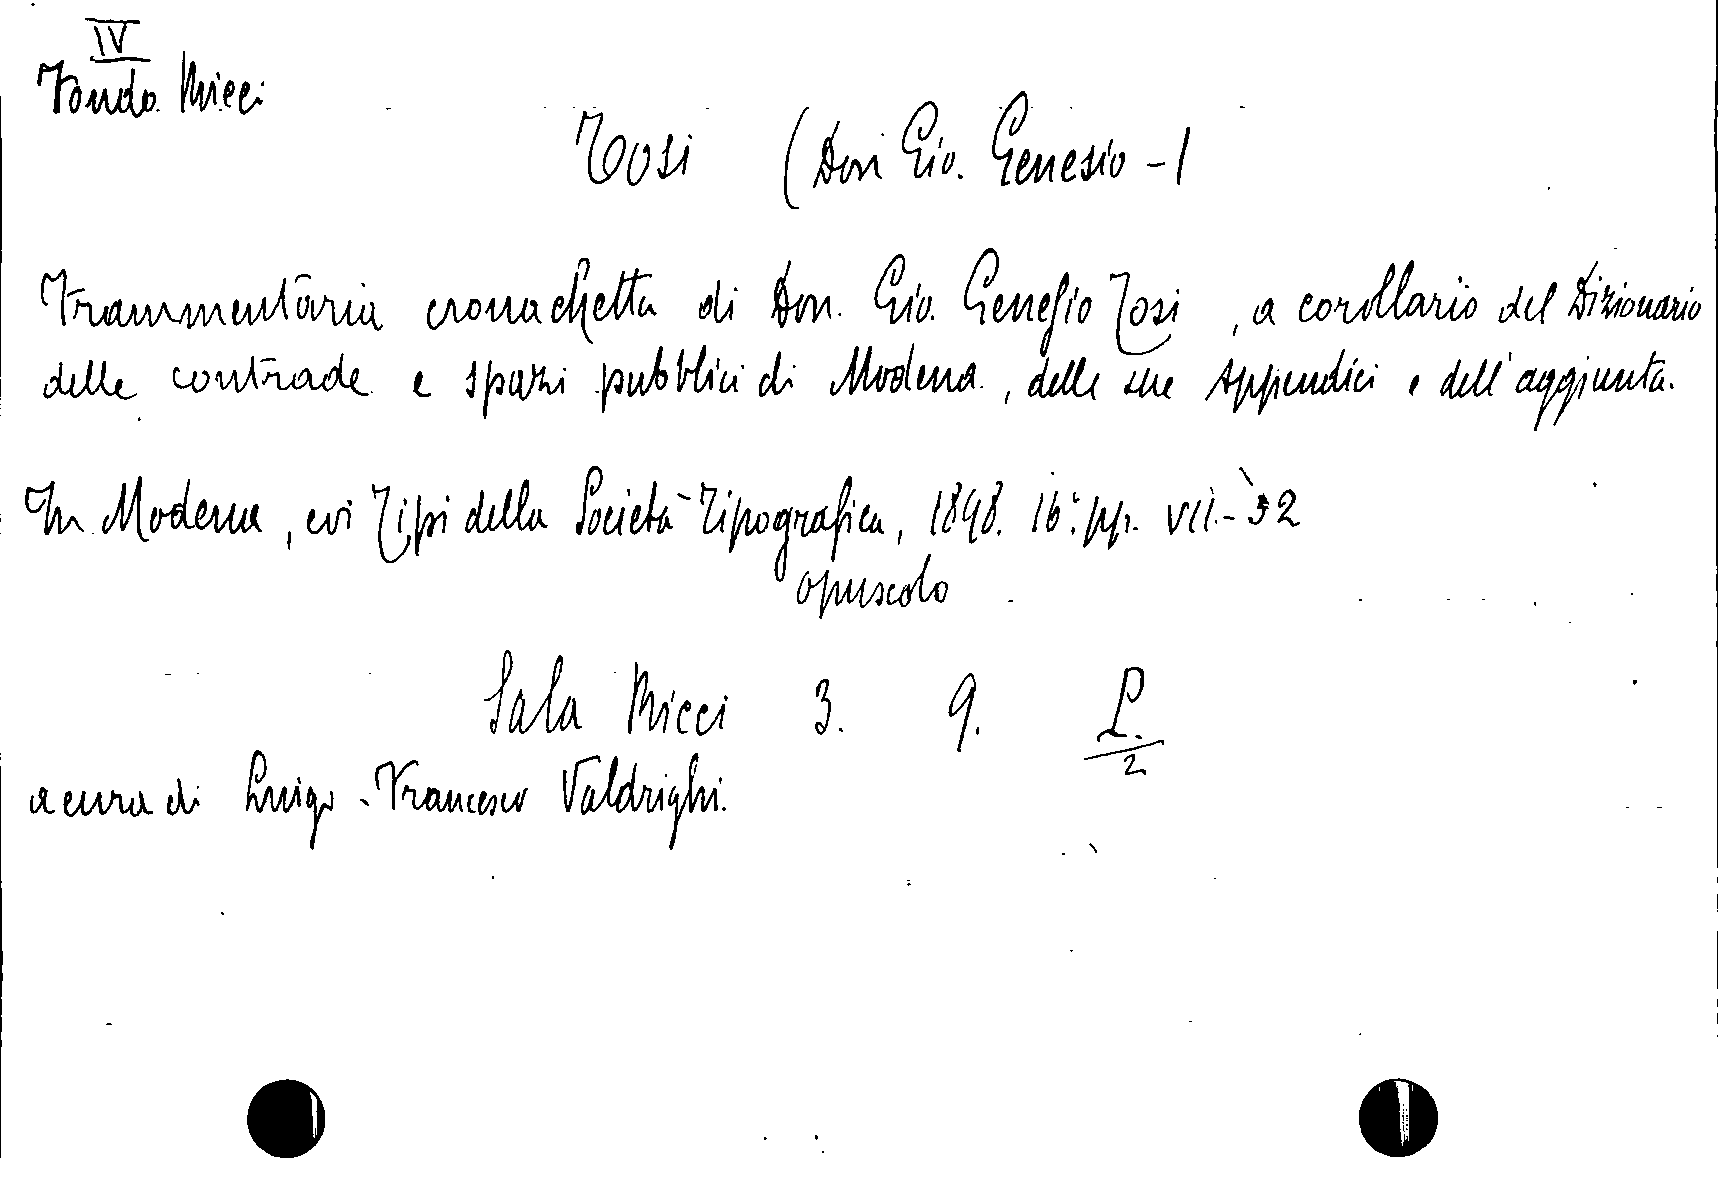 IV
Fondo Ricci
Tosi (Don Gio. Genesio -)
Frammentaria cronachetta di Don. Gio. Genesio Tosi, a corollario del Dizionario
delle contrade e spazi pubblici di Modena, delle sue Appendici e dell'aggiunta.
In Modena, coi Tipi della Società Tipografica, 1898. 16° pp. VII.-32
opuscolo
Sala Ricci 3. 9. L.
2
a cura di Luigi-Francesco Valdrighi.